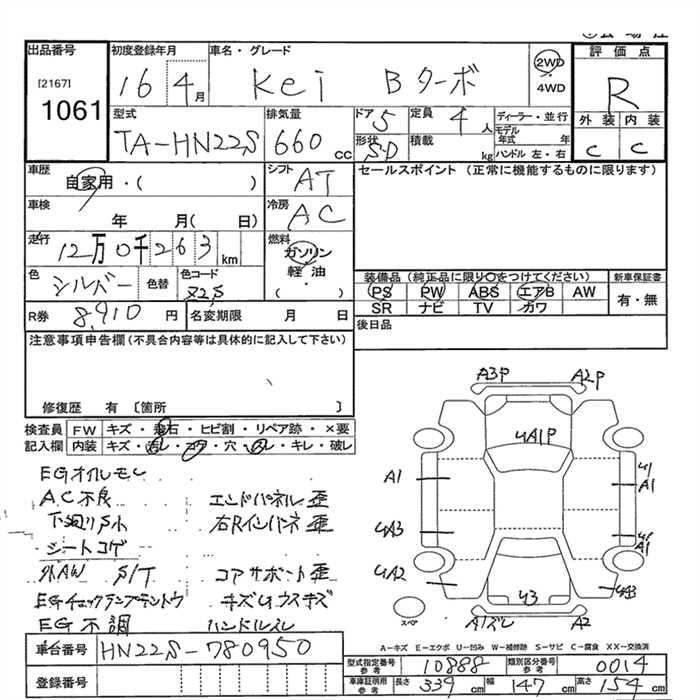 出品番号
[2167]
1061
初度登録年月
16 4月
車名・グレード
Kei Bターボ
2WD
・
4WD
評価点
R
外装 内装
C C
型式
TA-HN22S
排気量
660 cc
ドア 5
形状 SD
定員 4 人
積載 kg
ディーラー・並行
モデル年式 年
ハンドル 左・右
車歴
自家用・( )
シフト AT
セールスポイント (正常に機能するものに限ります)
車検
年 月( 日)
冷房 AC
走行
12万0千263 km
燃料
ガソリン
軽油・
( )
色 シルバー 色替
色コード Z2S
装備品 (純正品に限り○をつけてください)
新車保証書
PS PW ABS エアB AW
SR ナビ TV カワ
有・無
R券 8,910 円
名変期限 月 日
後日品
注意事項申告欄 (不具合内容等は具体的に記入して下さい)
修復歴 有 〔箇所 〕
検査員 FW キズ・飛石・ヒビ割・リペア跡・×要
記入欄 内装 キズ・汚レ・コゲ・穴・スレ・キレ・破レ
EGオイルモレ
AC不良
エンドパネル歪
下廻りS小
右Rインパネ歪
シートコゲ
外AW S/T
コアサポート歪
EGチェックランプテントウ
キズUウスキズ
EG不調
ハンドルスレ
A3P
A2P
U4A1P
A1
U1
A1
U4A3
U1
A1
U4A2
U4A3
U3
スペア
A1ズレ
A2
A-キズ E-エクボ U-凹み W-補修跡 S-サビ C-腐食 XX-交換済
車台番号 HN22S-780950
登録番号
型式指定番号
参考
10888
類別区分番号
参考
0014
車庫証明用
参考
長さ 339 cm 幅 147 cm 高さ 154 cm